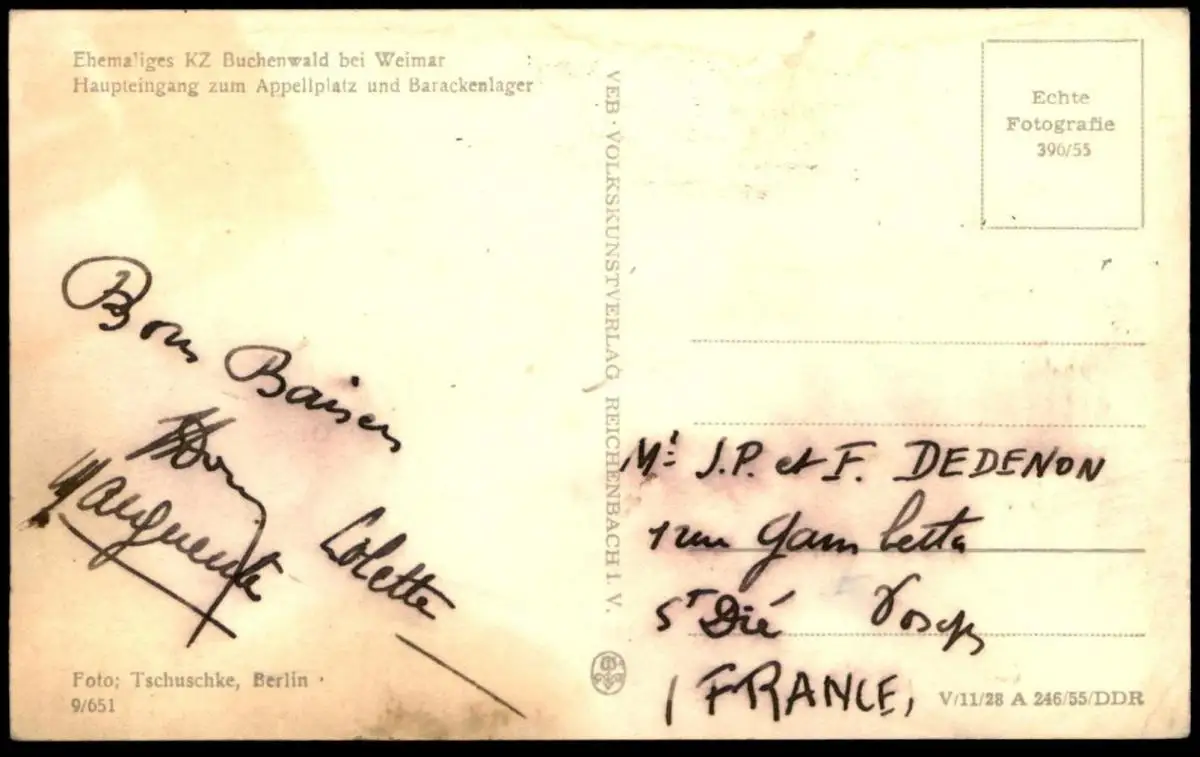 Ehemaliges KZ Buchenwald bei Weimar
Haupteingang zum Appellplatz und Barackenlager
Bons Baisers
Marguerite
Colette
Foto: Tschuschke, Berlin
9/651
VEB · VOLKSKUNSTVERLAG REICHENBACH i. V.
Echte
Fotografie
396/55
J.P. et F. DEDENON
1 rue Gambetta
ST Dié Vosges
(FRANCE)
V/11/28 A 246/55/DDR